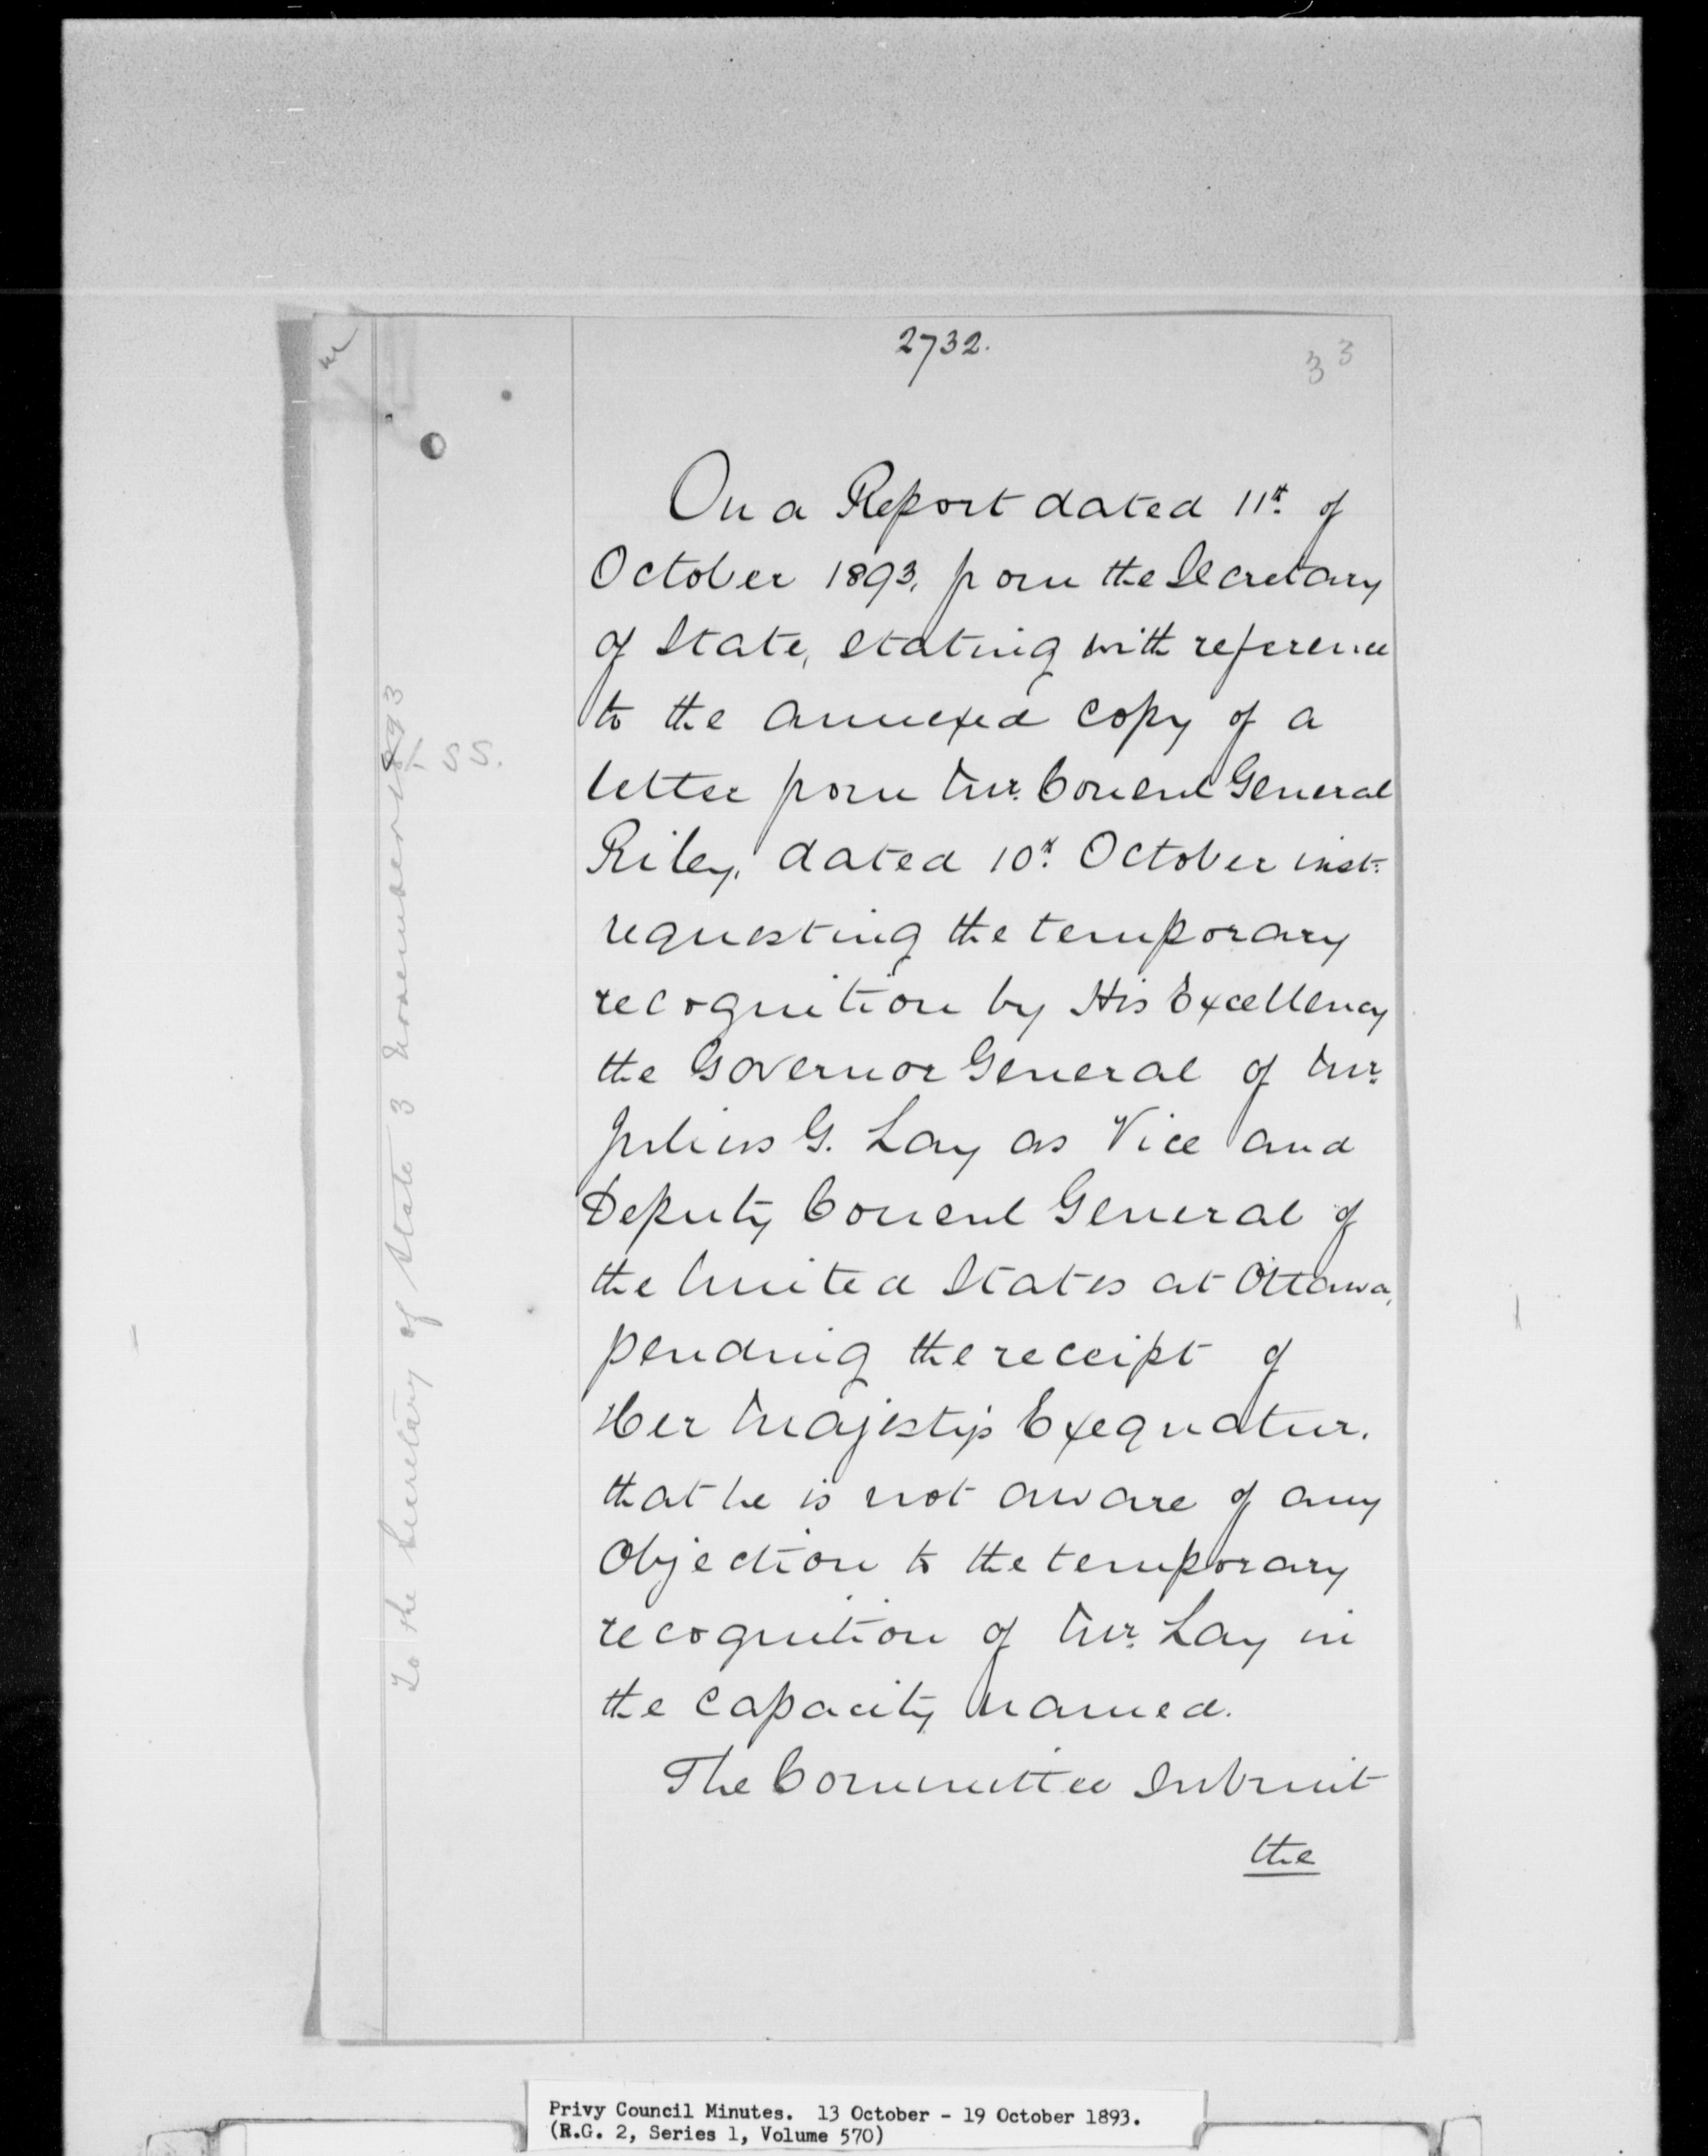 2732.
33
On a Report dated 11th of
October 1893, from the Secretary
of State, stating with reference
to the annexed copy of a
letter from Mr. Consul General
Riley, dated 10th October inst:
requesting the temporary
recognition by His Excellency
the Governor General of Mr.
Julius G. Lay as Vice and
Deputy Consul General of
the United States at Ottawa,
pending the receipt of
Her Majesty's Exequatur.
that he is not aware of any
objection to the temporary
recognition of Mr. Lay in
the capacity named.
The Committee submit
the
To the Secretary of State 3 November 1893
SS.
Privy Council Minutes. 13 October - 19 October 1893.
(R.G. 2, Series 1, Volume 570)